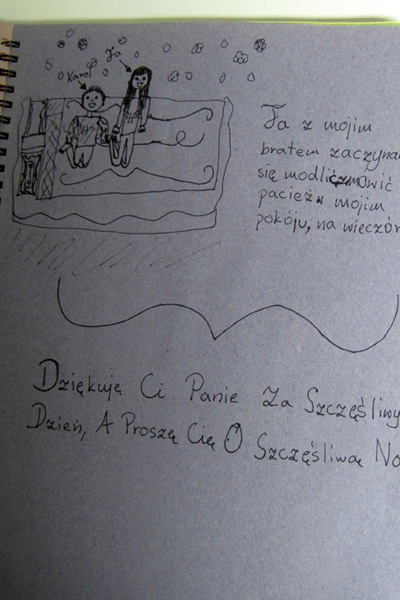 Karol
Ja
Ja z mojim
bratem zaczyna
się modlić mowić
pacież w mojim
pokóju, na wieczór
Dziękuję Ci Panie Za Szczęśliwy
Dzień, A Proszę Cię O Szczęśliwą No